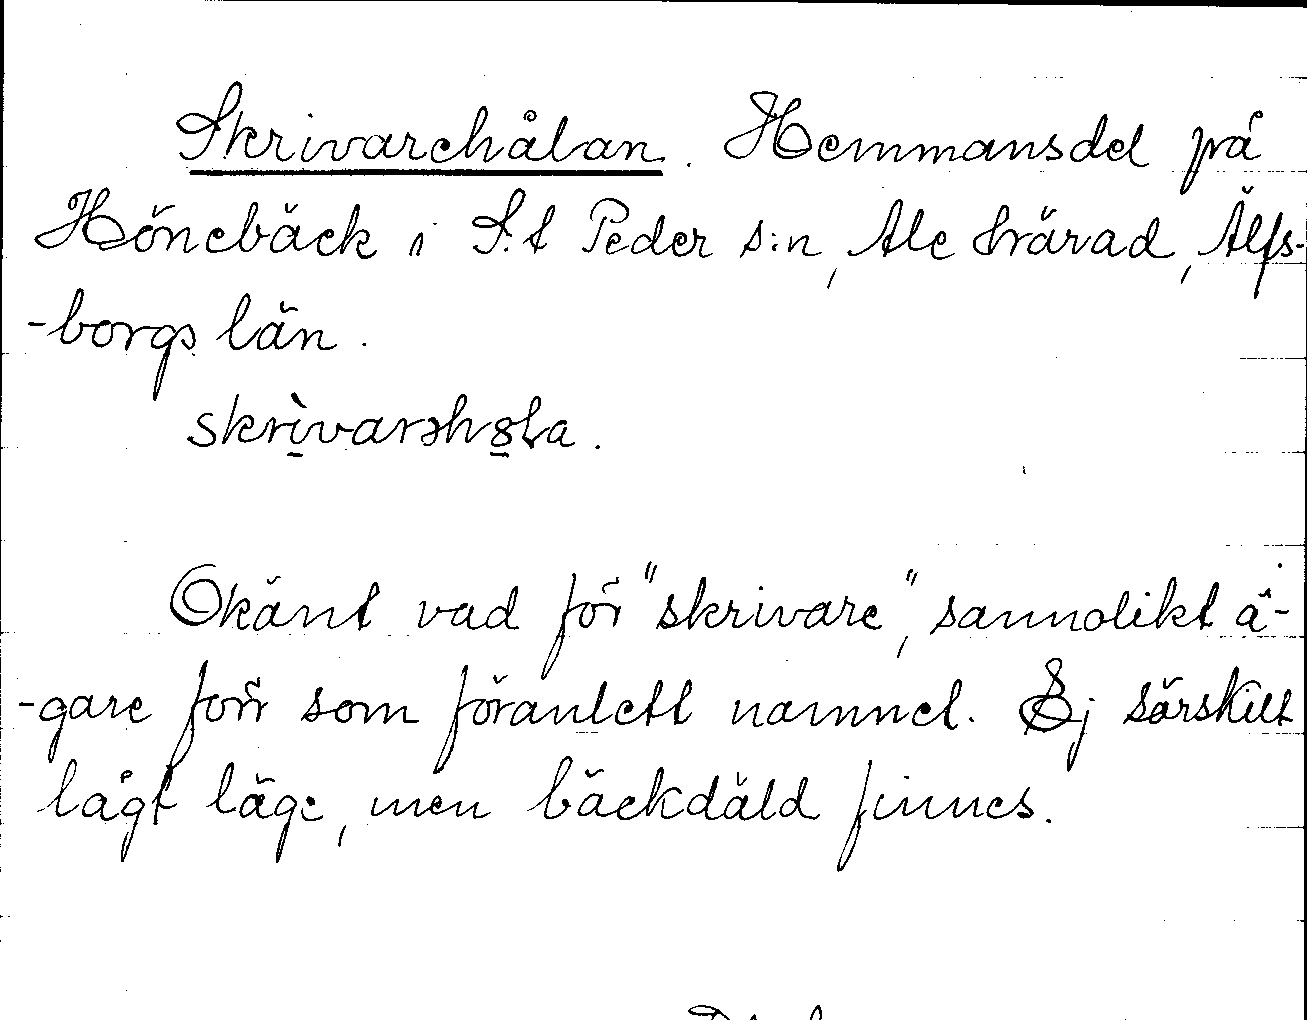 Skrivarehålan. Hemmansdel på
Hönebäck i S:t Peder s:n, Ale härad, Älfs-
-borgs län.
Okänt vad för "skrivare", sannolikt ä-
-gare förr som föranlett namnet. Ej särskilt
lågt läge, men bäckdäld finnes.